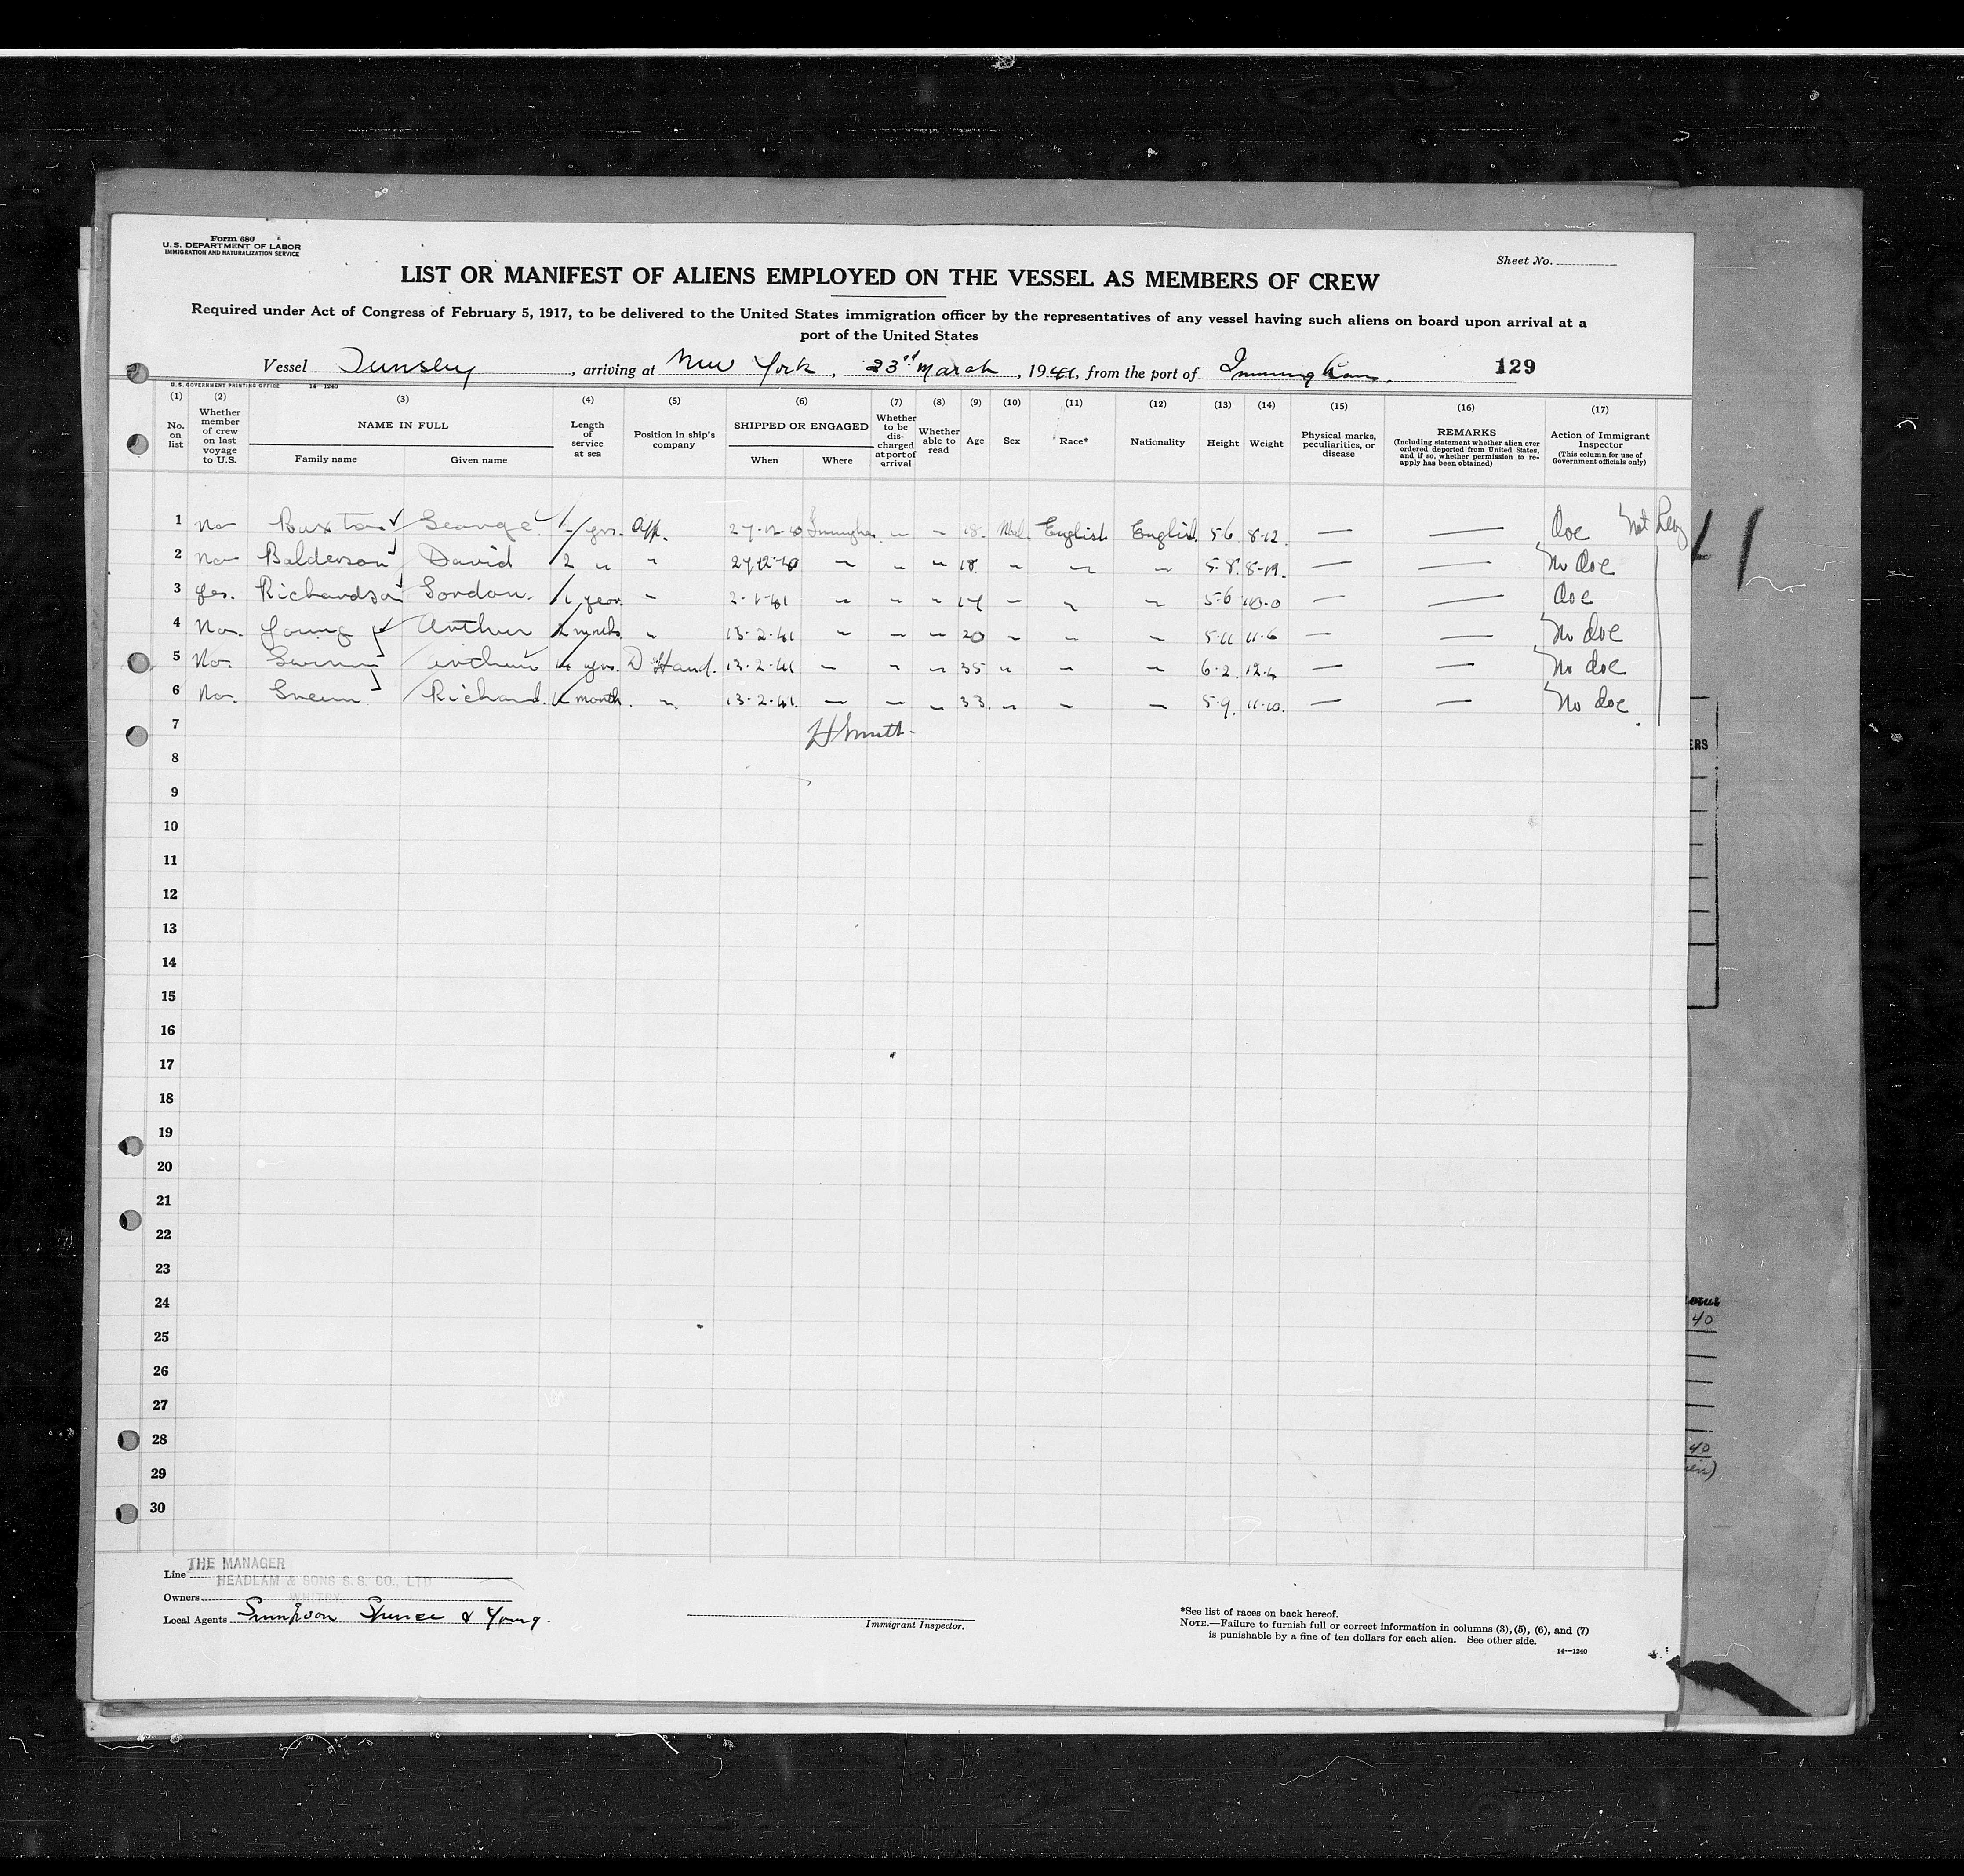 Form 680
U. S. DEPARTMENT OF LABOR
IMMIGRATION AND NATURALIZATION SERVICE
Sheet No.
LIST OR MANIFEST OF ALIENS EMPLOYED ON THE VESSEL AS MEMBERS OF CREW
Required under Act of Congress of February 5, 1917, to be delivered to the United States immigration officer by the representatives of any vessel having such aliens on board upon arrival at a
port of the United States
Vessel Dunsley, arriving at New York, 23rd March, 1941, from the port of Immingham. 129
U. S. GOVERNMENT PRINTING OFFICE 14—1240
(1) No. on list
(2) Whether member of crew on last voyage to U.S.
(3) NAME IN FULL Family name Given name
(4) Length of service at sea
(5) Position in ship's company
(6) SHIPPED OR ENGAGED When Where
(7) Whether to be discharged at port of arrival
(8) Whether able to read
(9) Age
(10) Sex
(11) Race*
(12) Nationality
(13) Height
(14) Weight
(15) Physical marks, peculiarities, or disease
(16) REMARKS (Including statement whether alien ever ordered deported from United States, and if so, whether permission to reapply has been obtained)
(17) Action of Immigrant Inspector (This column for use of Government officials only)
1 No Buxton George yrs. App. 27-12-40 18 English English 5-6 8-12 — — Doc Not
2 No Balderson David 2 " " 27-12-40 " " " 18 " " " 5-8 — — No Doc
3 Yes. Richardson Gordon. 1 year " 2-1-41 " " " 17 " " " 5-6 10-0 — — Doc
4 No. Young Arthur 2 months " 13-2-41 " " " 20 " " " 5-11 11-6 — — No doc
5 No. yrs. D Hand. 13-2-41 " " " 35 " " " 6-2 12-4 — — No doc
6 No. Richard. month. " 13-2-41 " " " 33 " " " 5-9. 11-10. — — No doc
7 H Smith
8
9
10
11
12
13
14
15
16
17
18
19
20
21
22
23
24
25
26
27
28
29
30
THE MANAGER
Line
HEADLAM & SONS S.S. CO., LTD
Owners WHITBY
Local Agents Simpson Spence & Young.
Immigrant Inspector.
*See list of races on back hereof.
NOTE.—Failure to furnish full or correct information in columns (3), (5), (6), and (7)
is punishable by a fine of ten dollars for each alien. See other side.
14—1240
ERS
40
40